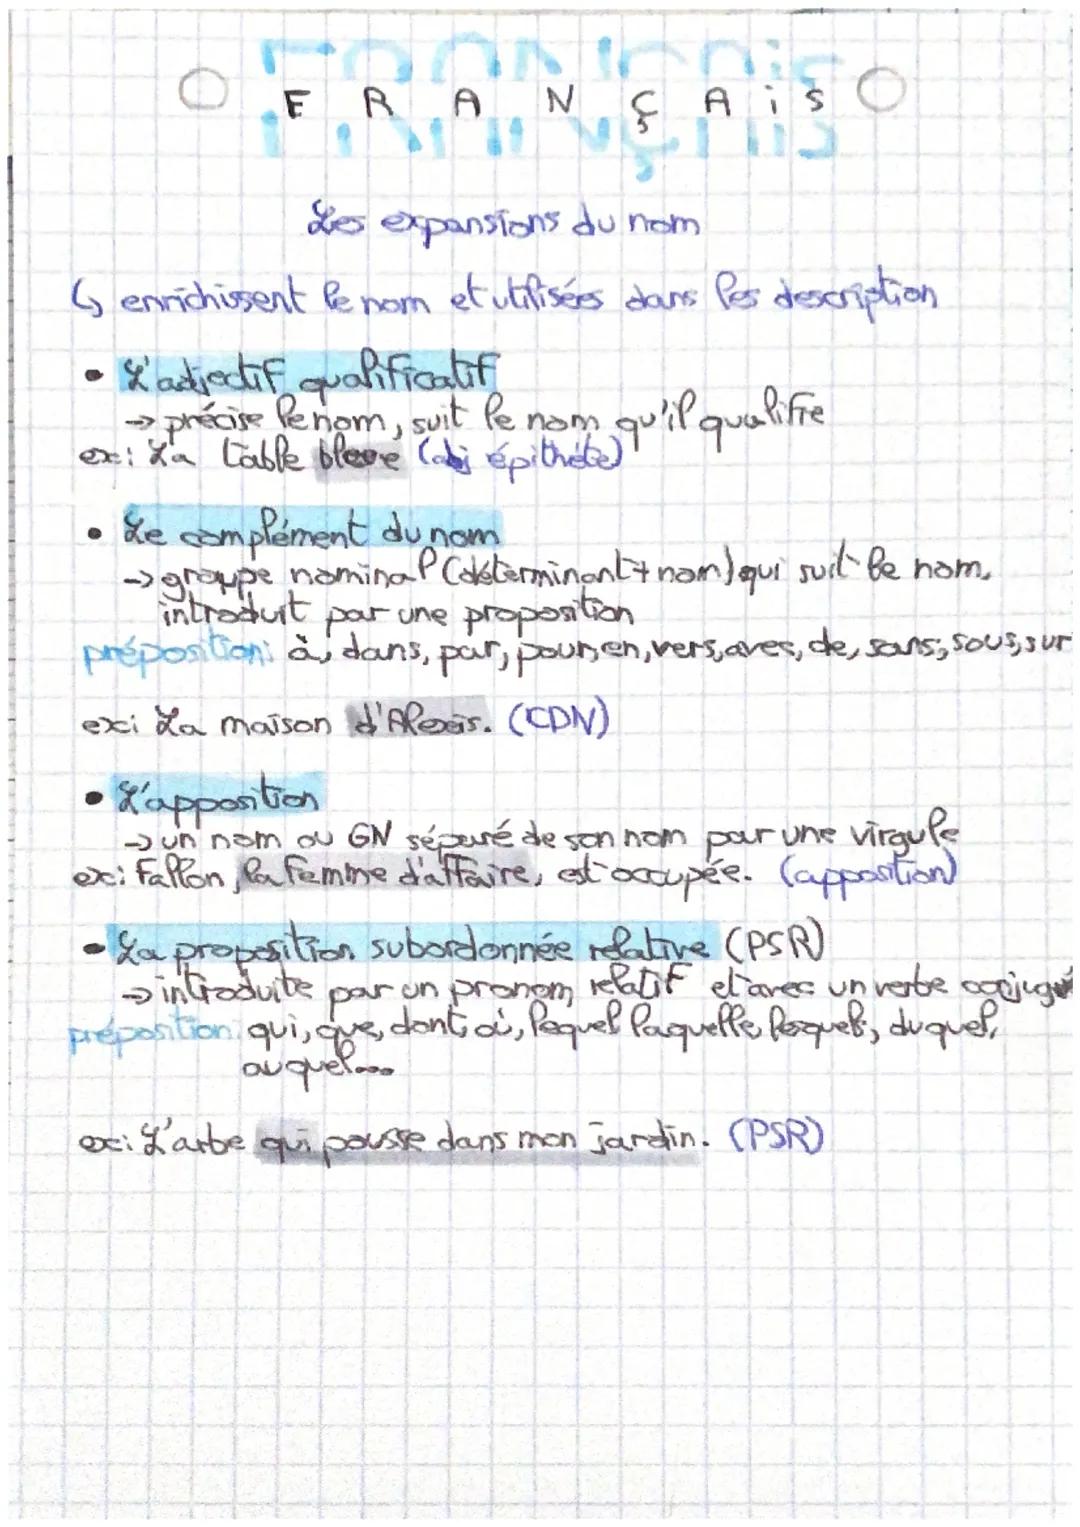 FRANÇAIS
FRANÇAiS
Les expansions du nom
↳ enrichissent le nom et utilisées dans les description
• L'adjectif qualificatif
→ précise le nom, suit le nom qu'il qualifie
ex: La table bleue (adj épithète)
• Le complément du nom
→ groupe nominal (déterminant + nom) qui suit le nom,
introduit par une proposition
préposition: à, dans, par, pour, en, vers, avec, de, sans, sous, sur
ex: La maison d'Alexis. (CDN)
• L'apposition
→ un nom ou GN séparé de son nom par une virgule
ex: Fallon, la femme d'affaire, est occupée. (apposition)
• La proposition subordonnée relative (PSR)
→ introduite par un pronom relatif et avec un verbe conjugué
préposition: qui, que, dont, où, lequel laquelle, lesquels, duquel,
auquel...
ex: L'arbe qui pousse dans mon jardin. (PSR)